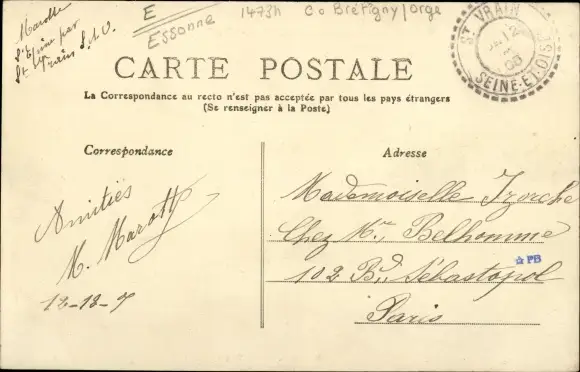 E
Essonne
1473h
Co Brétigny/orge
Marotte
d'Epine par
St Vrain S.&O.
ST VRAIN
12
08
SEINE-ET-OISE
CARTE POSTALE
La Correspondance au recto n'est pas acceptée par tous les pays étrangers
(Se renseigner à la Poste)
Correspondance
Adresse
Amitiés
M. Marotte
12-12-7
Mademoiselle
Chez Mr, Belhomme
102 Bd. Sébastopol
Paris
☆PB